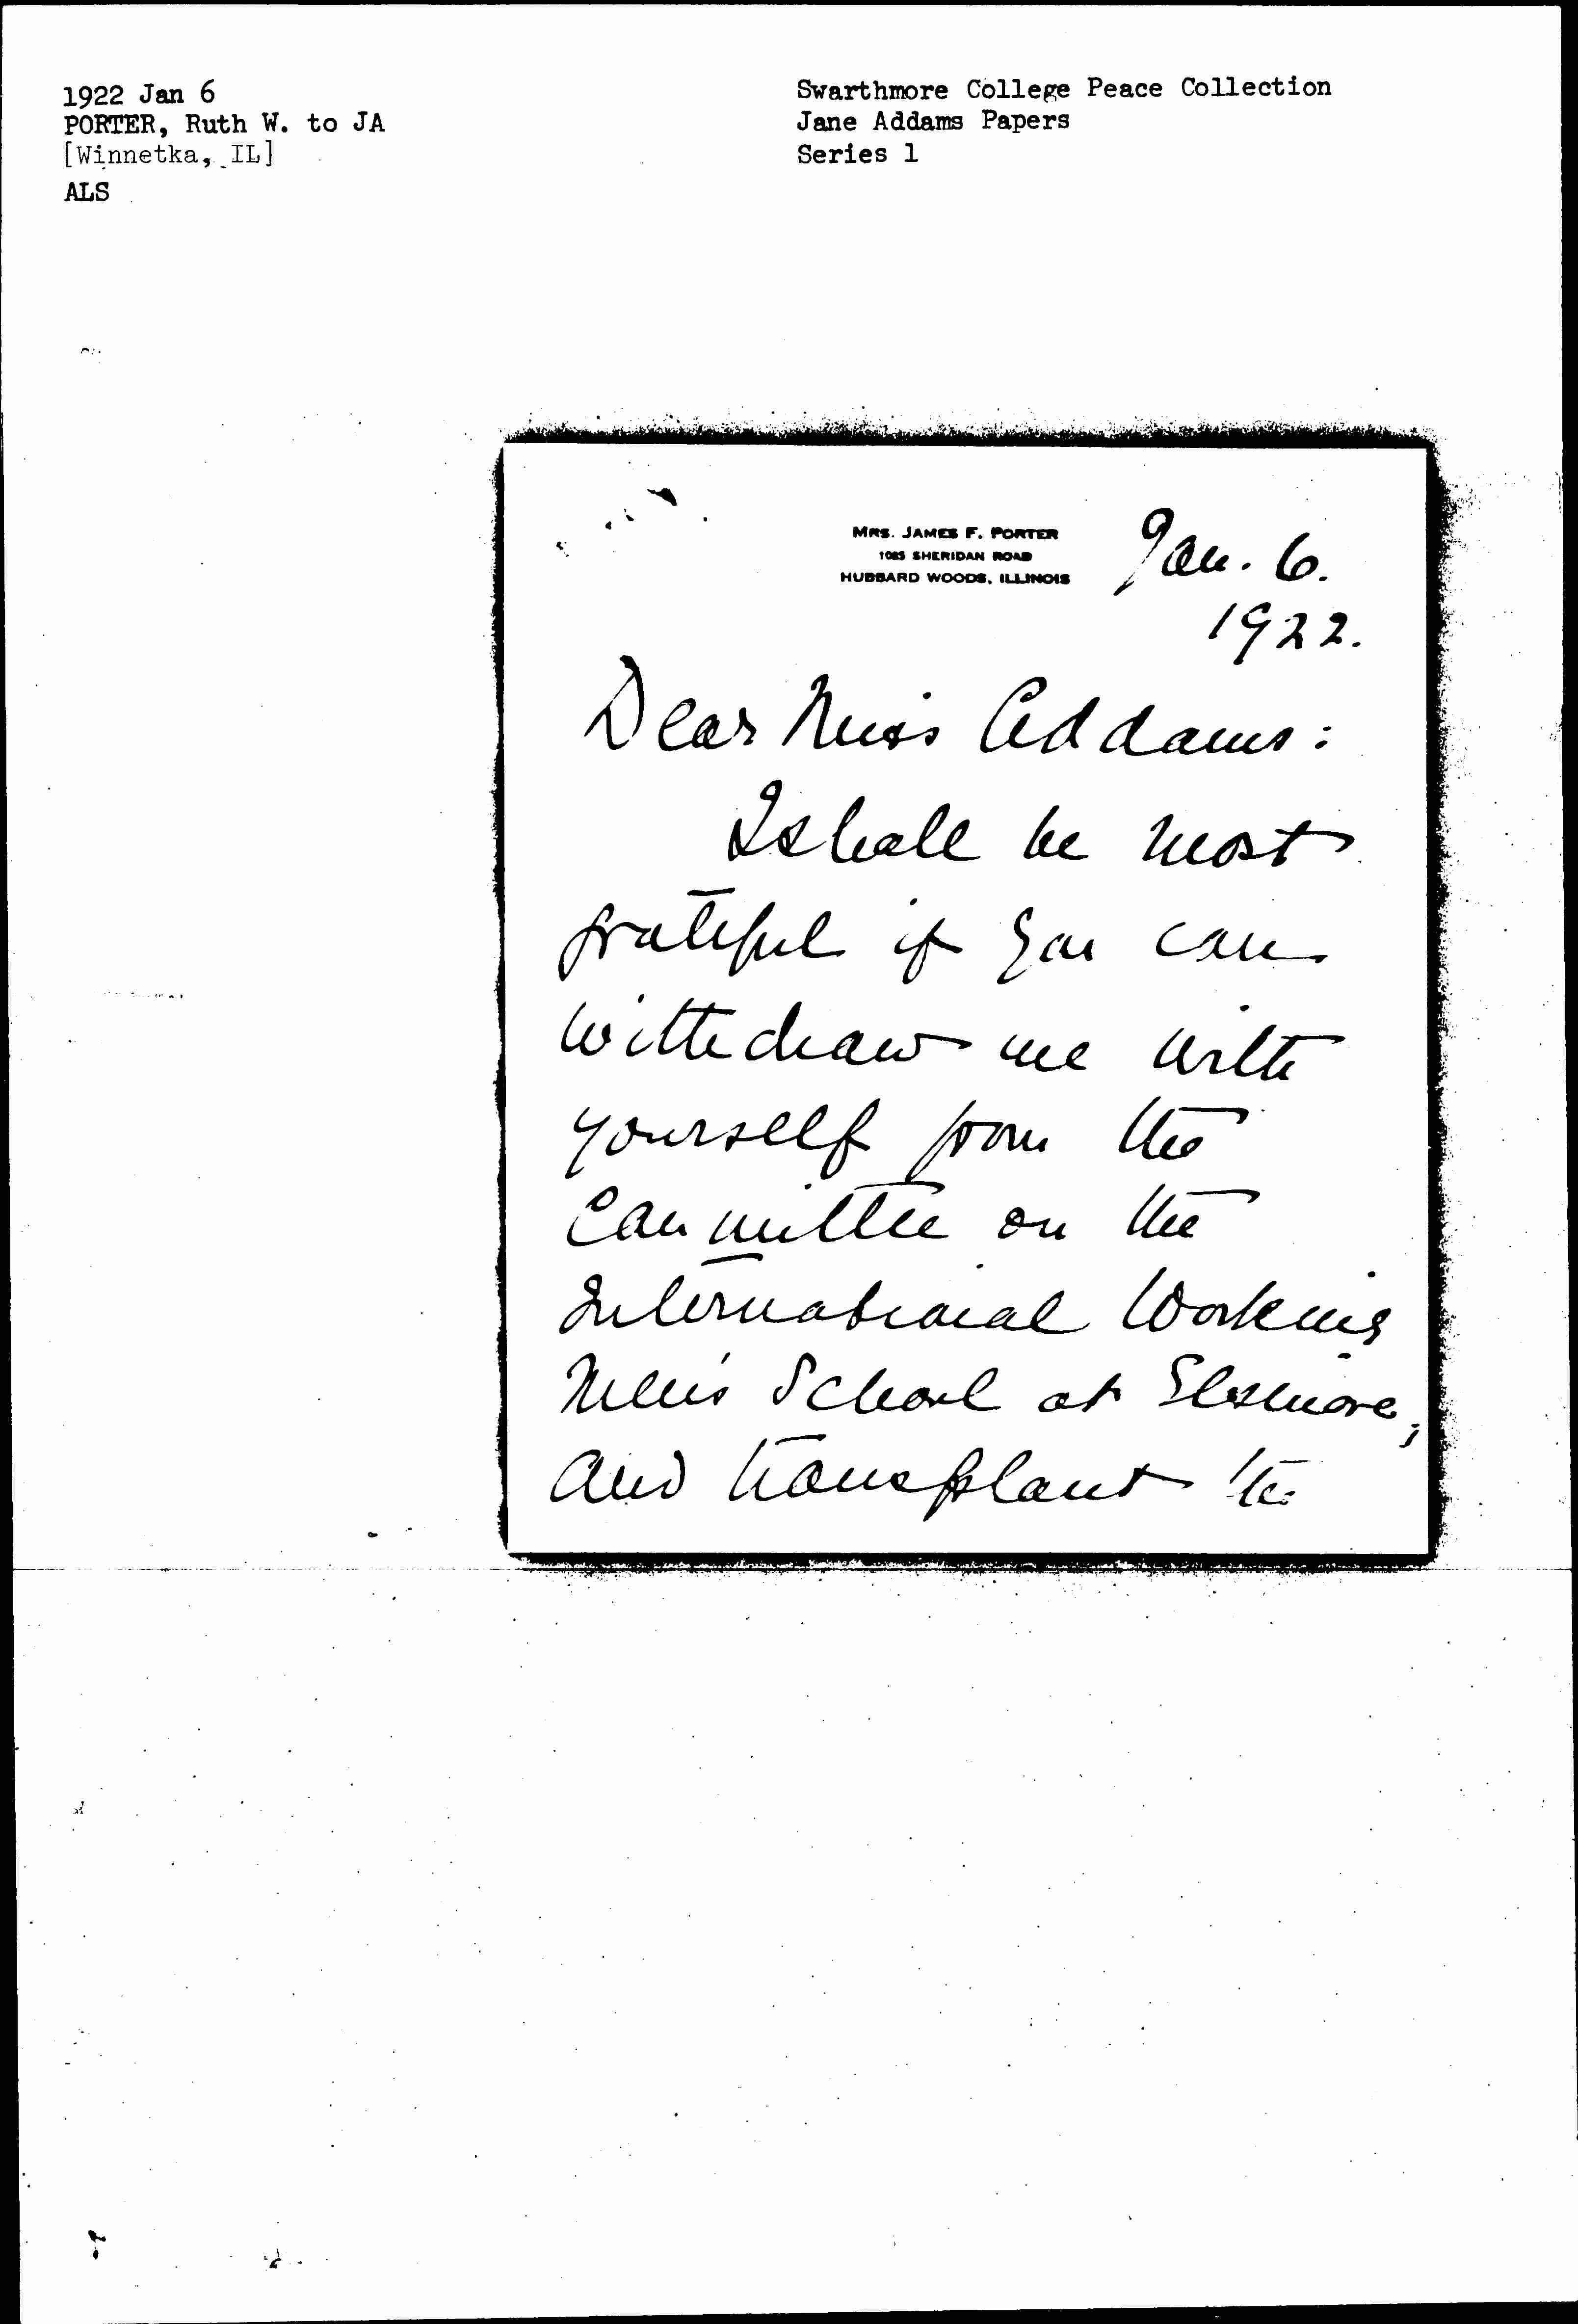 1922 Jan 6
PORTER, Ruth W. to JA
[Winnetka, IL]
ALS
Swarthmore College Peace Collection
Jane Addams Papers
Series 1
MRS. JAMES F. PORTER
1085 SHERIDAN ROAD
HUBBARD WOODS, ILLINOIS
Jan. 6.
1922.
Dear Miss Addams:
I shall be most
grateful if you can
withdraw me with
yourself from the
Committee on the
International Working
Men's School at Elsinore,
and transplant to